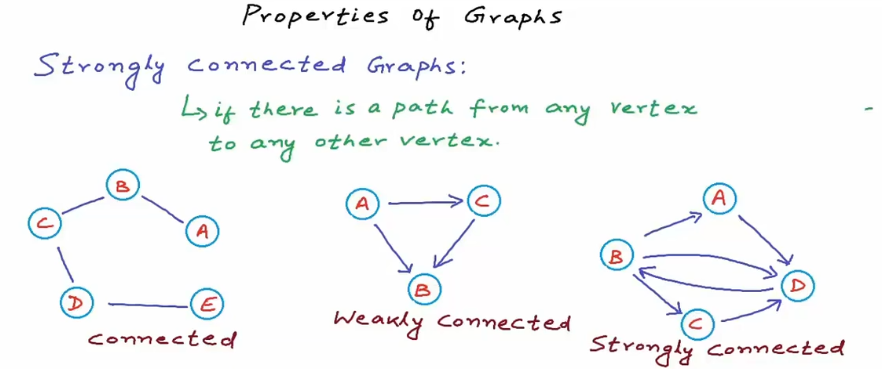 Properties of Graphs
Strongly connected Graphs:
↳ if there is a path from any vertex
to any other vertex.
B
C
A
D
E
connected
A
C
B
Weakly connected
A
B
D
C
Strongly connected